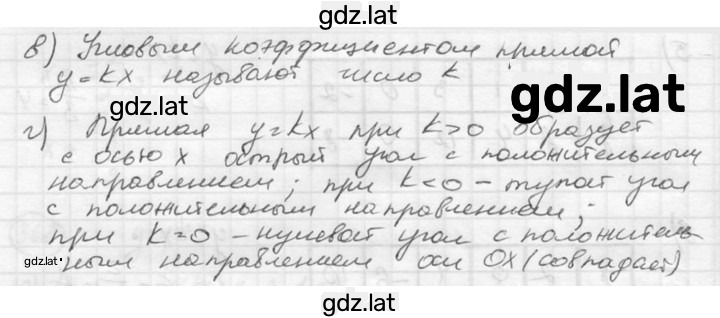 gdz.lat
в) Угловым коэффициентом прямой
y=kx называют число k
gdz.lat
gdz.lat
г) Прямая y=kx при k>0 образует
с осью x острый угол с положительным
направлением; при k<0 - тупой угол
с положительным направлением;
при k=0 - нулевой угол с положитель
gdz.lat
ным направлением оси OX (совпадает)
gdz.lat